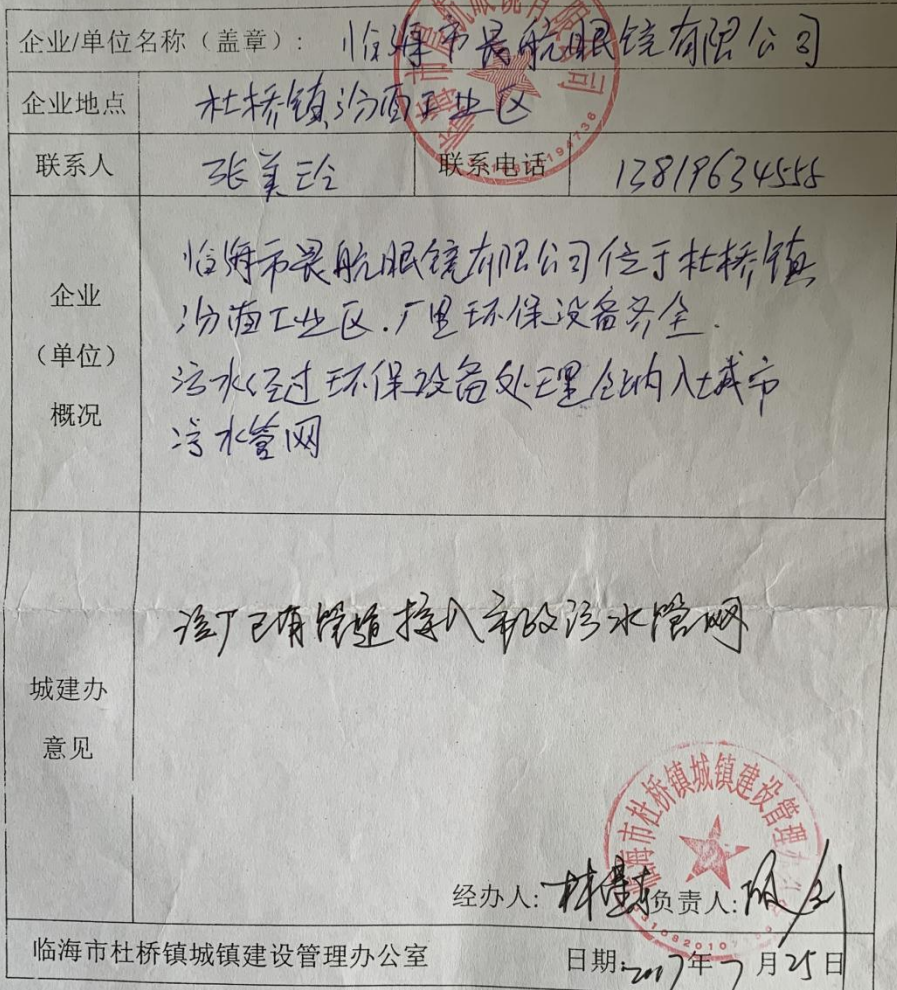 企业/单位名称（盖章）: 临海市晨航眼镜有限公司
企业地点 杜桥镇汾西工业区
联系人 张美玲 联系电话 13819634555
企业（单位）概况
临海市晨航眼镜有限公司位于杜桥镇
汾西工业区.厂里环保设备齐全.
污水经过环保设备处理 纳入城市
污水管网
城建办意见
该厂已有管道接入市政污水管网
临海市杜桥镇城镇建设管理
经办人: 林 负责人:
临海市杜桥镇城镇建设管理办公室 日期: 2017年7月25日